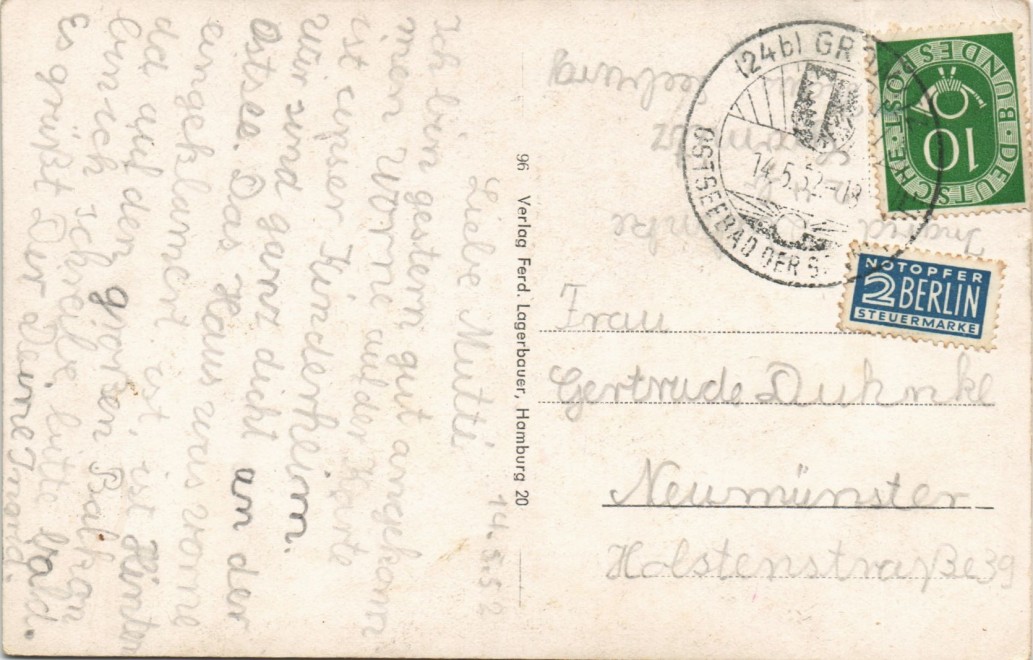 14.5.52
Liebe Mutti
Ich bin gestern gut angekom
men Vorne auf der Karte
ist unser Kinderheim.
Wir sind ganz dicht an der
Ostee. Das Haus was vorne
angeklamert ist, ist Hinten
da auf dem großen Balkon
bin ich schreibe bitte bald.
Es grüßt Dir Deine Ingrid.
96 Verlag Ferd. Lagerbauer, Hamburg 20
(24b) GR
14.5.52-18
OSTSEEBAD DER S
DEUTSCHE·BUNDESPOST
10
NOTOPFER
2 BERLIN
STEUERMARKE
Ingrid
Frau
Gertrude
Neumünster
Holstenstraße 39